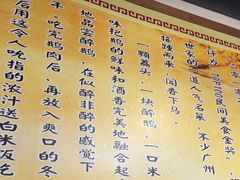 为"100/100民间美食金奖"
道人气名菜，不少广州
接踵而来，闻香下马，
一颗蒜头，一块醉鹅，一口米
味把鹅的鲜味和酒香完美地融合起
地品尝醉鹅，在似醉非醉的感觉下
吃完鹅肉后，再放入爽口的冬
后用这令人吃指的浓汁送白米饭